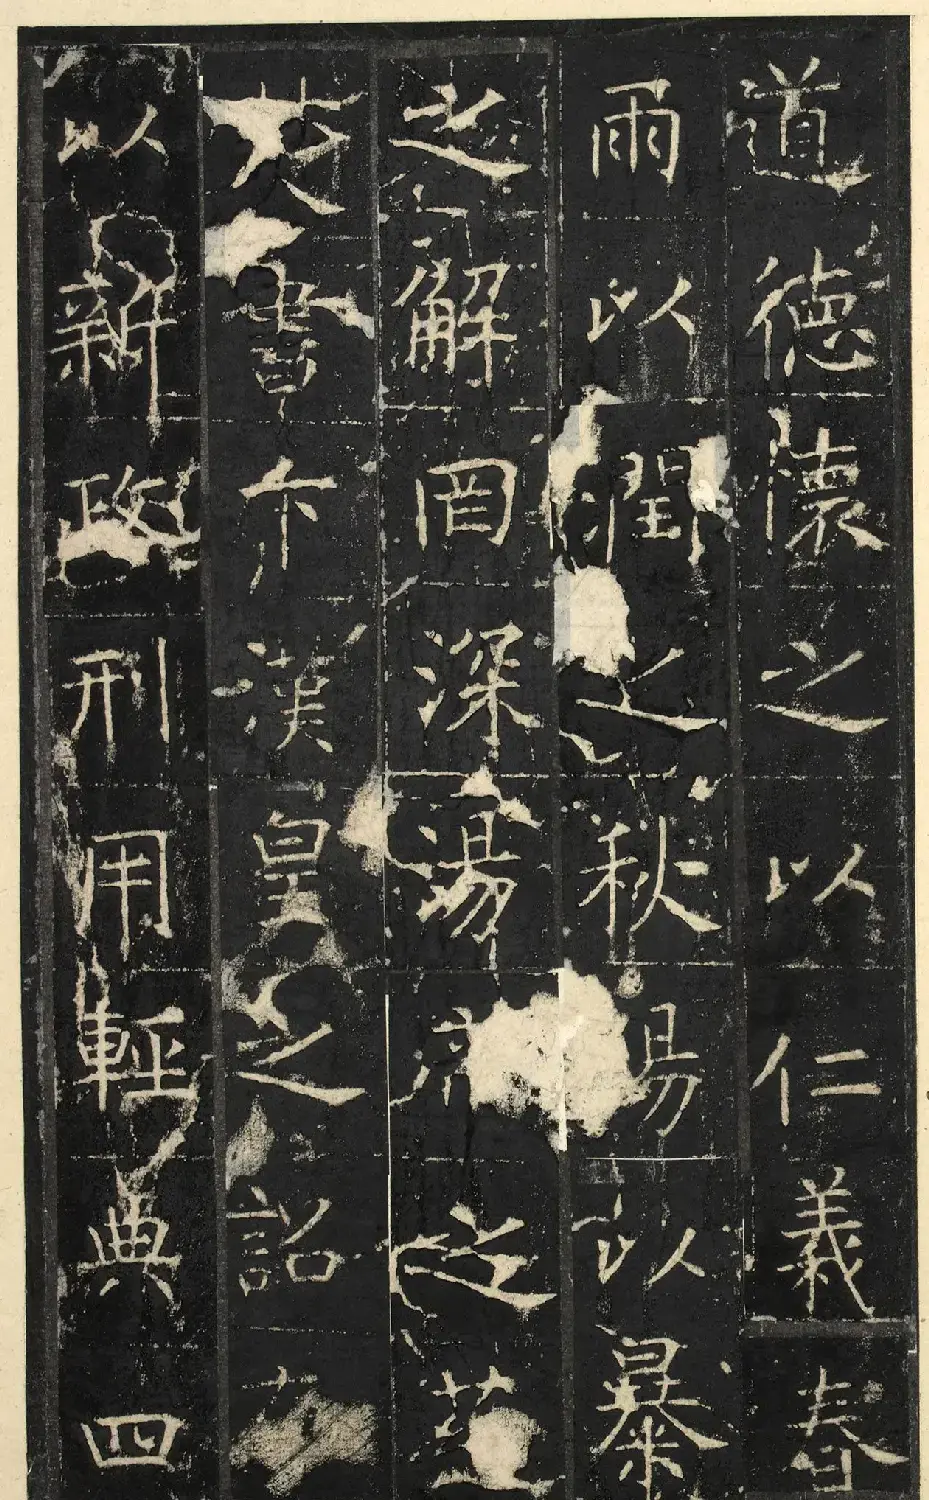 道德懷之以仁義春
雨以潤之秋陽以暴
之解罔深湯之
焚書卞漢皇之詔
以新政刑用輕典四